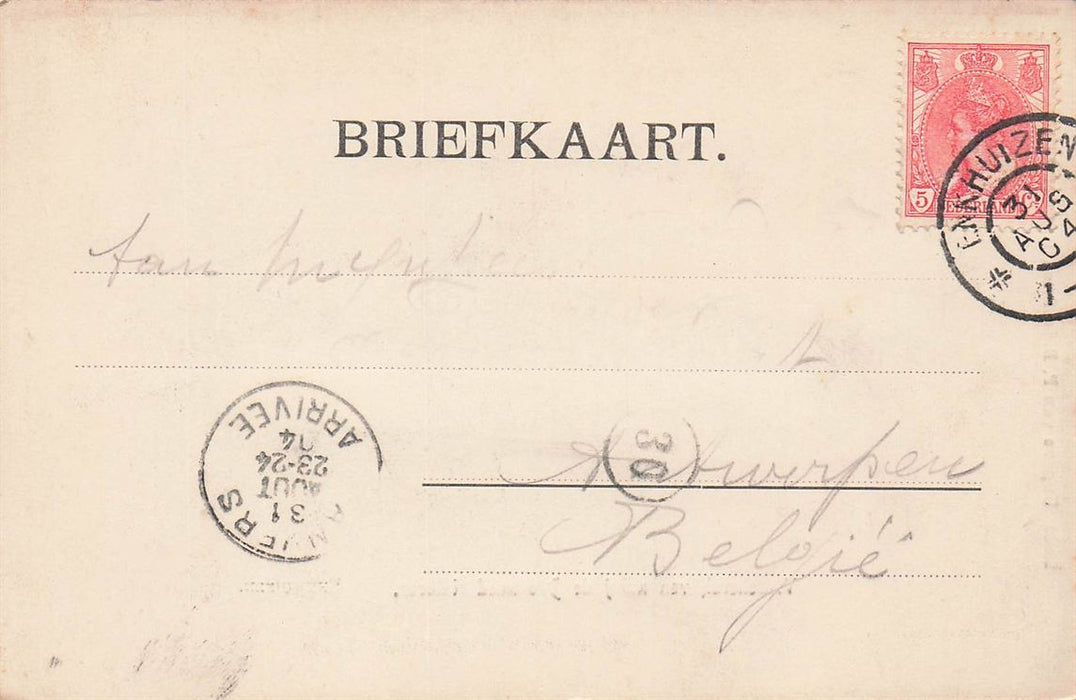 BRIEFKAART.
5 NEDERLAND
ENKHUIZEN
31
AUG
04
Aan
Antwerpen
30
België
ANVERS
31
AOUT
23-24
04
ARRIVÉE